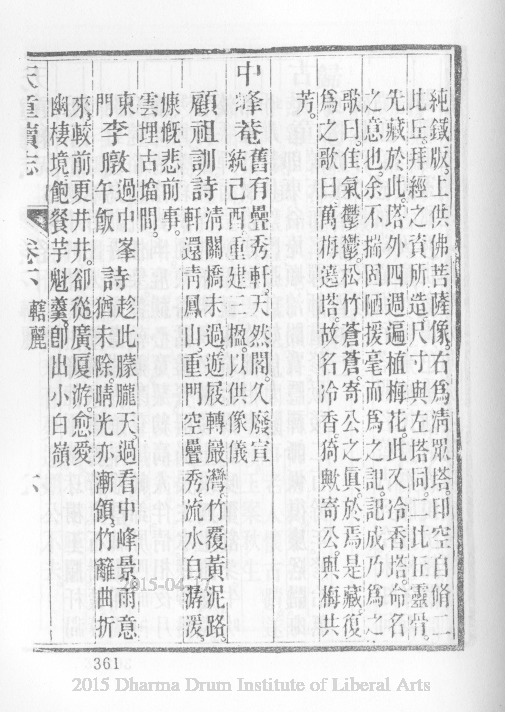 純鐵版上供佛菩薩像右爲清眾塔印空自脩二
比丘拜經之資所造尺寸與左塔同二比丘靈骨
先藏於此塔外四週遍植梅花此又冷香塔命名
之意也余不揣固陋援毫而爲之記記成乃爲之
歌曰佳氣鬱鬱松竹蒼蒼寄公之眞於焉是藏復
爲之歌曰萬梅遶塔故名冷香猗歟寄公與梅共
芳
中峰菴舊有疊秀軒天然閣久廢宣
統己酉重建三楹以供像儀
顧祖訓詩清關橋未過遊屐轉巖灣竹覆黃泥路
軒還靑鳳山重門空疊秀流水自潺湲
慷慨悲前事
雲埋古墖間
東李暾過中峯詩趁此朦朧天過看中峰景雨意
門午飯猶未除晴光亦漸領竹籬曲折
來較前更井井卻從廣厦游愈愛
幽棲境飽餐芋魁羹卽出小白嶺
天童續志
卷下
轄麗
六
361
2015-04-
2015 Dharma Drum Institute of Liberal Arts